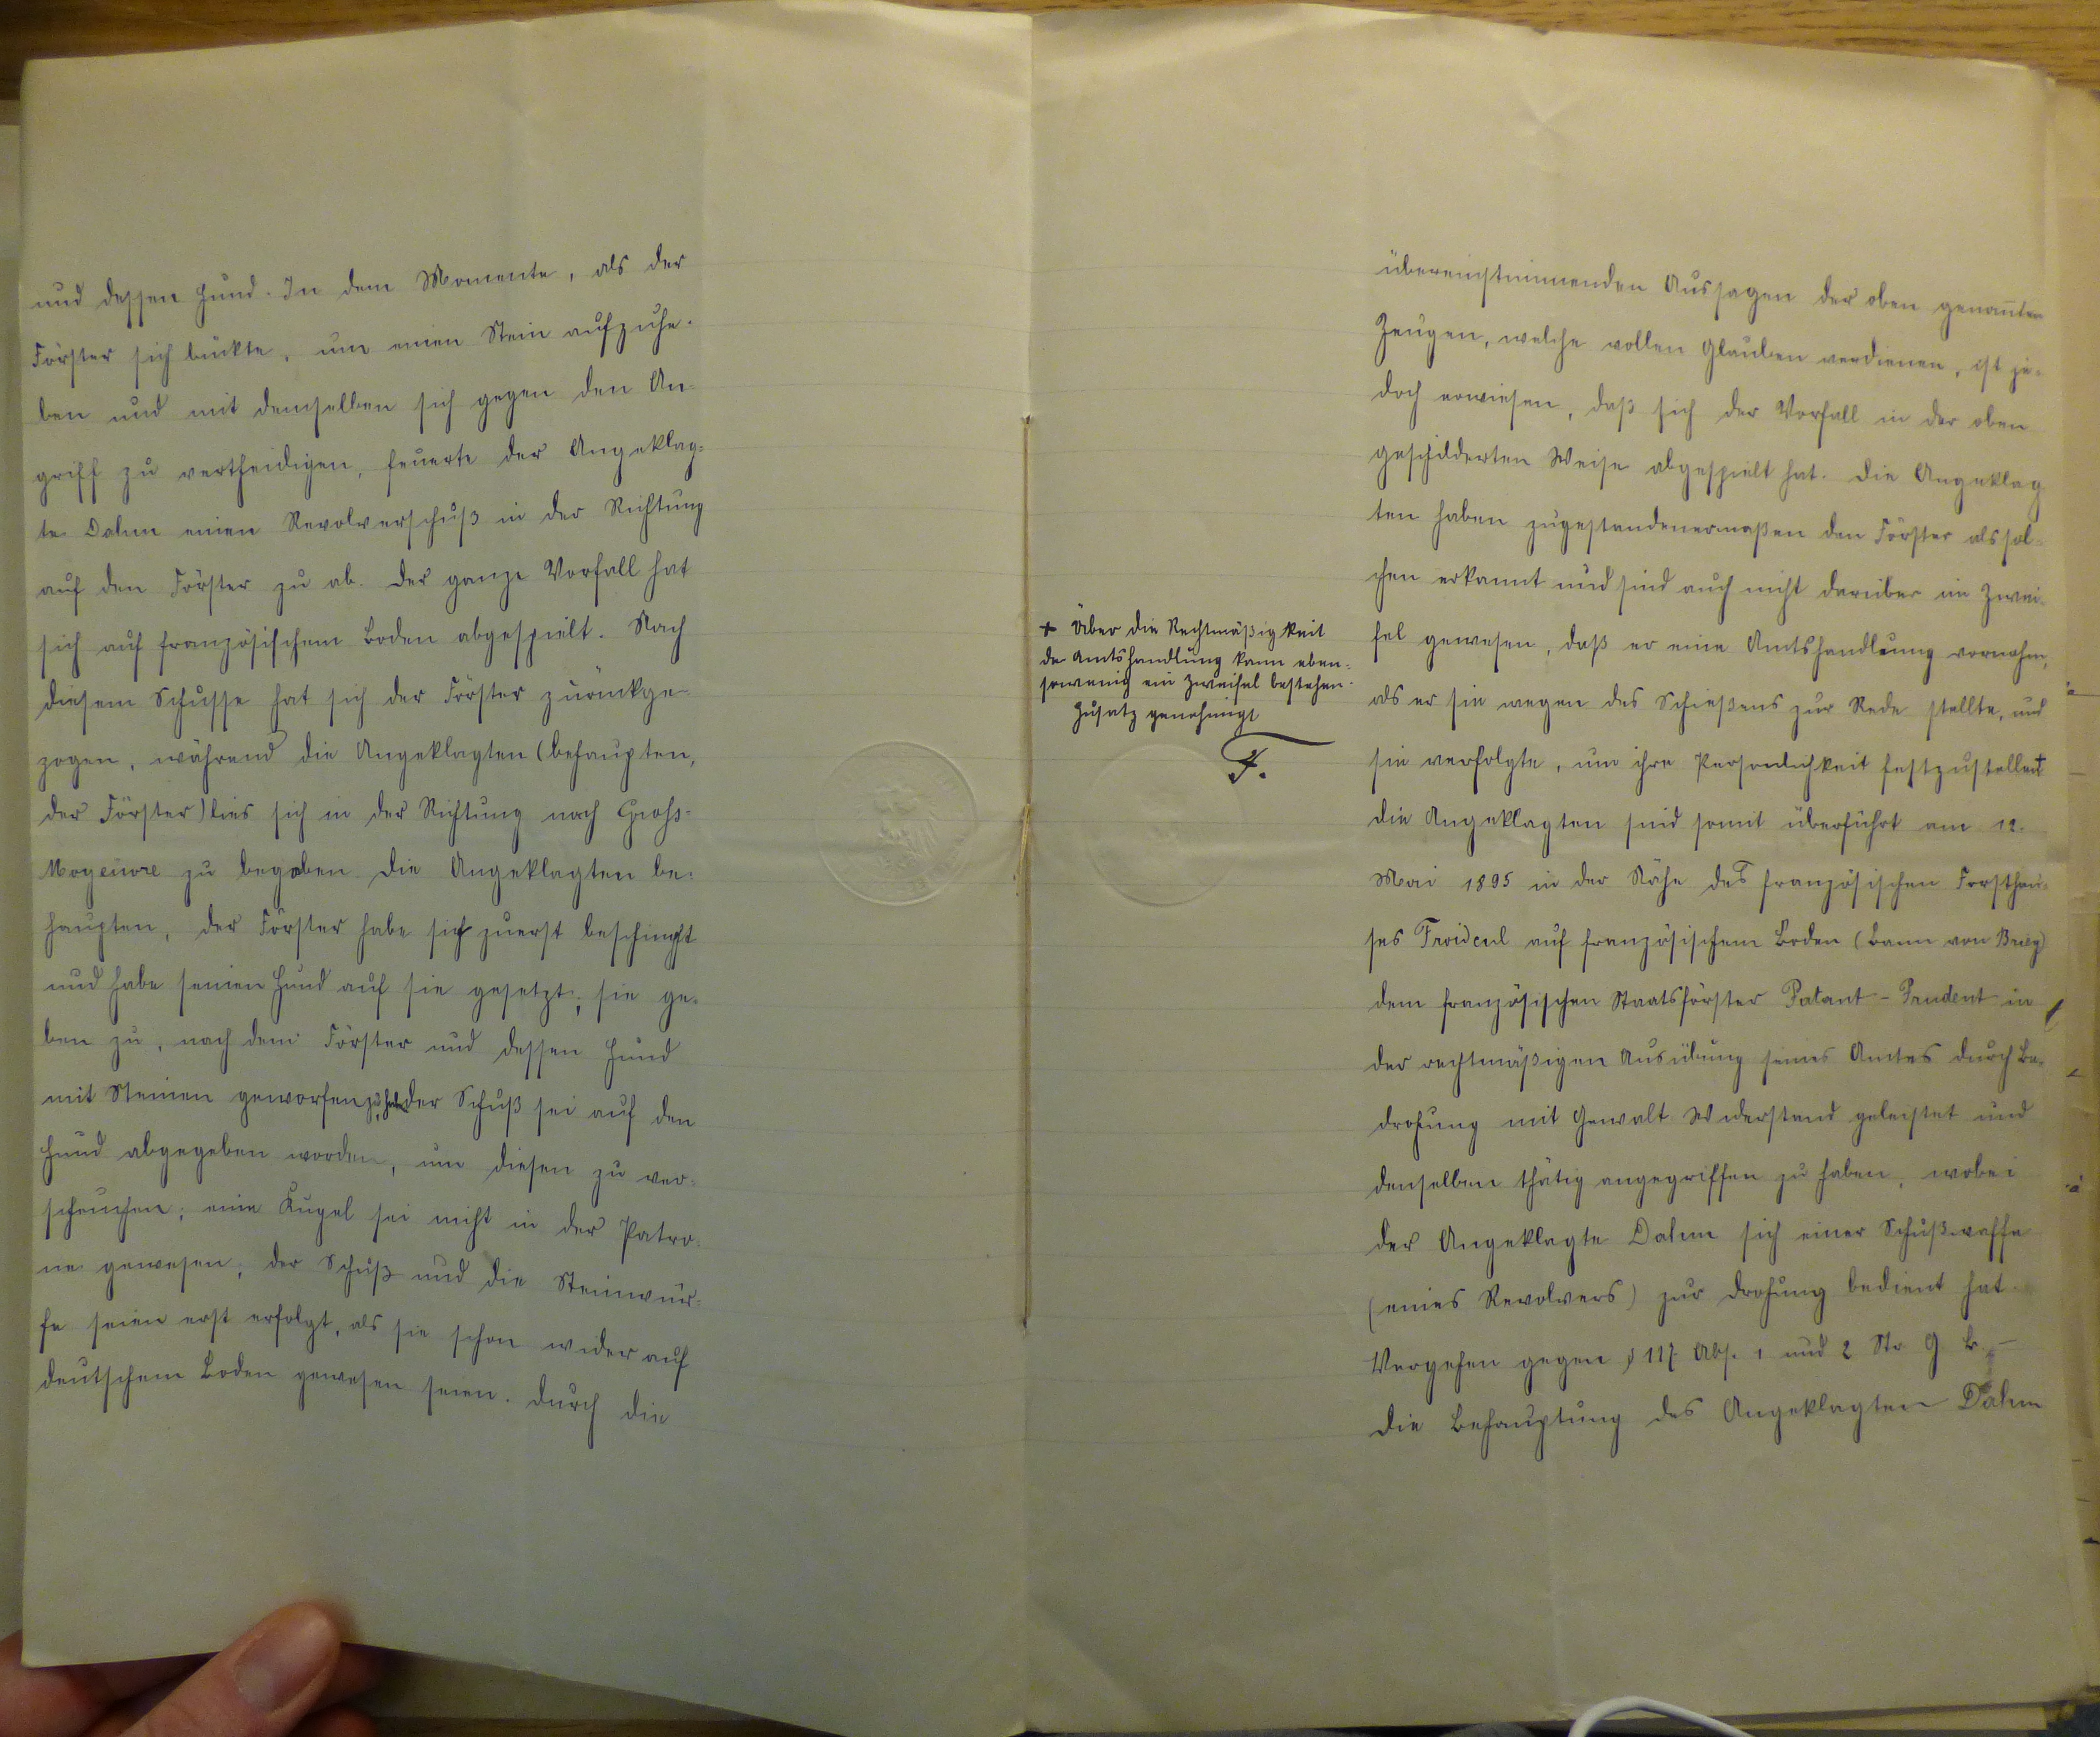 und dessen Hund. In dem Momente, als der
Förster sich bückte, um einen Stein aufzuhe-
ben und mit demselben sich gegen den An-
griff zu vertheidigen, feuerte der Angeklag-
te Dahm einen Revolverschuß in der Richtung
auf den Förster zu ab. Der ganze Vorfall hat
sich auf französischem Boden abgespielt. Nach
diesem Schusse hat sich der Förster zurückge-
zogen, während die Angeklagten (behaupten,
der Förster) lies sich in der Richtung nach Gross-
Moyeuvre zu begaben Die Angeklagten be-
haupten, der Förster habe sich zuerst beschimpft
und habe seinen Hund auf sie gesetzt; sie ge-
ben zu, nach dem Förster und dessen Hund
mit Steinen geworfen zu haben der Schuß sei auf den
Hund abgegeben worden, um diesen zu ver-
scheuchen; eine Kugel sei nicht in der Patro-
ne gewesen; der Schuß und die Steinwür-
fe seien erst erfolgt, als sie schon wider auf
deutschem Boden gewesen seien. Durch die
+ Über die Rechtmäßigkeit
der Amtshandlung kann eben-
sowenig ein Zweifel bestehen.
Zusatz genehmigt
F.
übereinstimmenden Aussagen der oben genannten
Zeugen, welche vollen Glauben verdienen, ist je-
doch erwiesen, daß sich der Vorfall in der oben
geschilderten Weise abgespielt hat. Die Angeklag
ten haben zugestandenermaßen den Förster als sol-
chen erkannt und sind auch nicht darüber im Zwei-
fel gewesen, daß er eine Amtshandlung vornahm,
als er sie wegen des Schießens zur Rede stellte, und
sie verfolgte, um ihre Personlichkeit festzustellen +
Die Angeklagten sind somit überführt am 12.
Mai 1895 in der Nähe des französischen Forsthau-
ses Froidcul auf französischem Boden (Bann von Briey)
dem französischen Staatsförster Patant - Prudent in
der rechtmäßigen Ausübung seines Amtes durch Be-
drohung mit Gewalt Widerstand geleistet und
denselben thätig angegriffen zu haben, wobei
der Angeklagte Dahm sich einer Schußwaffe
(eines Revolvers) zur Drohung bedient hat.
Vergehen gegen § 117 Abs. 1 und 2 Str G B. -
Die Behauptung des Angeklagten Dahm